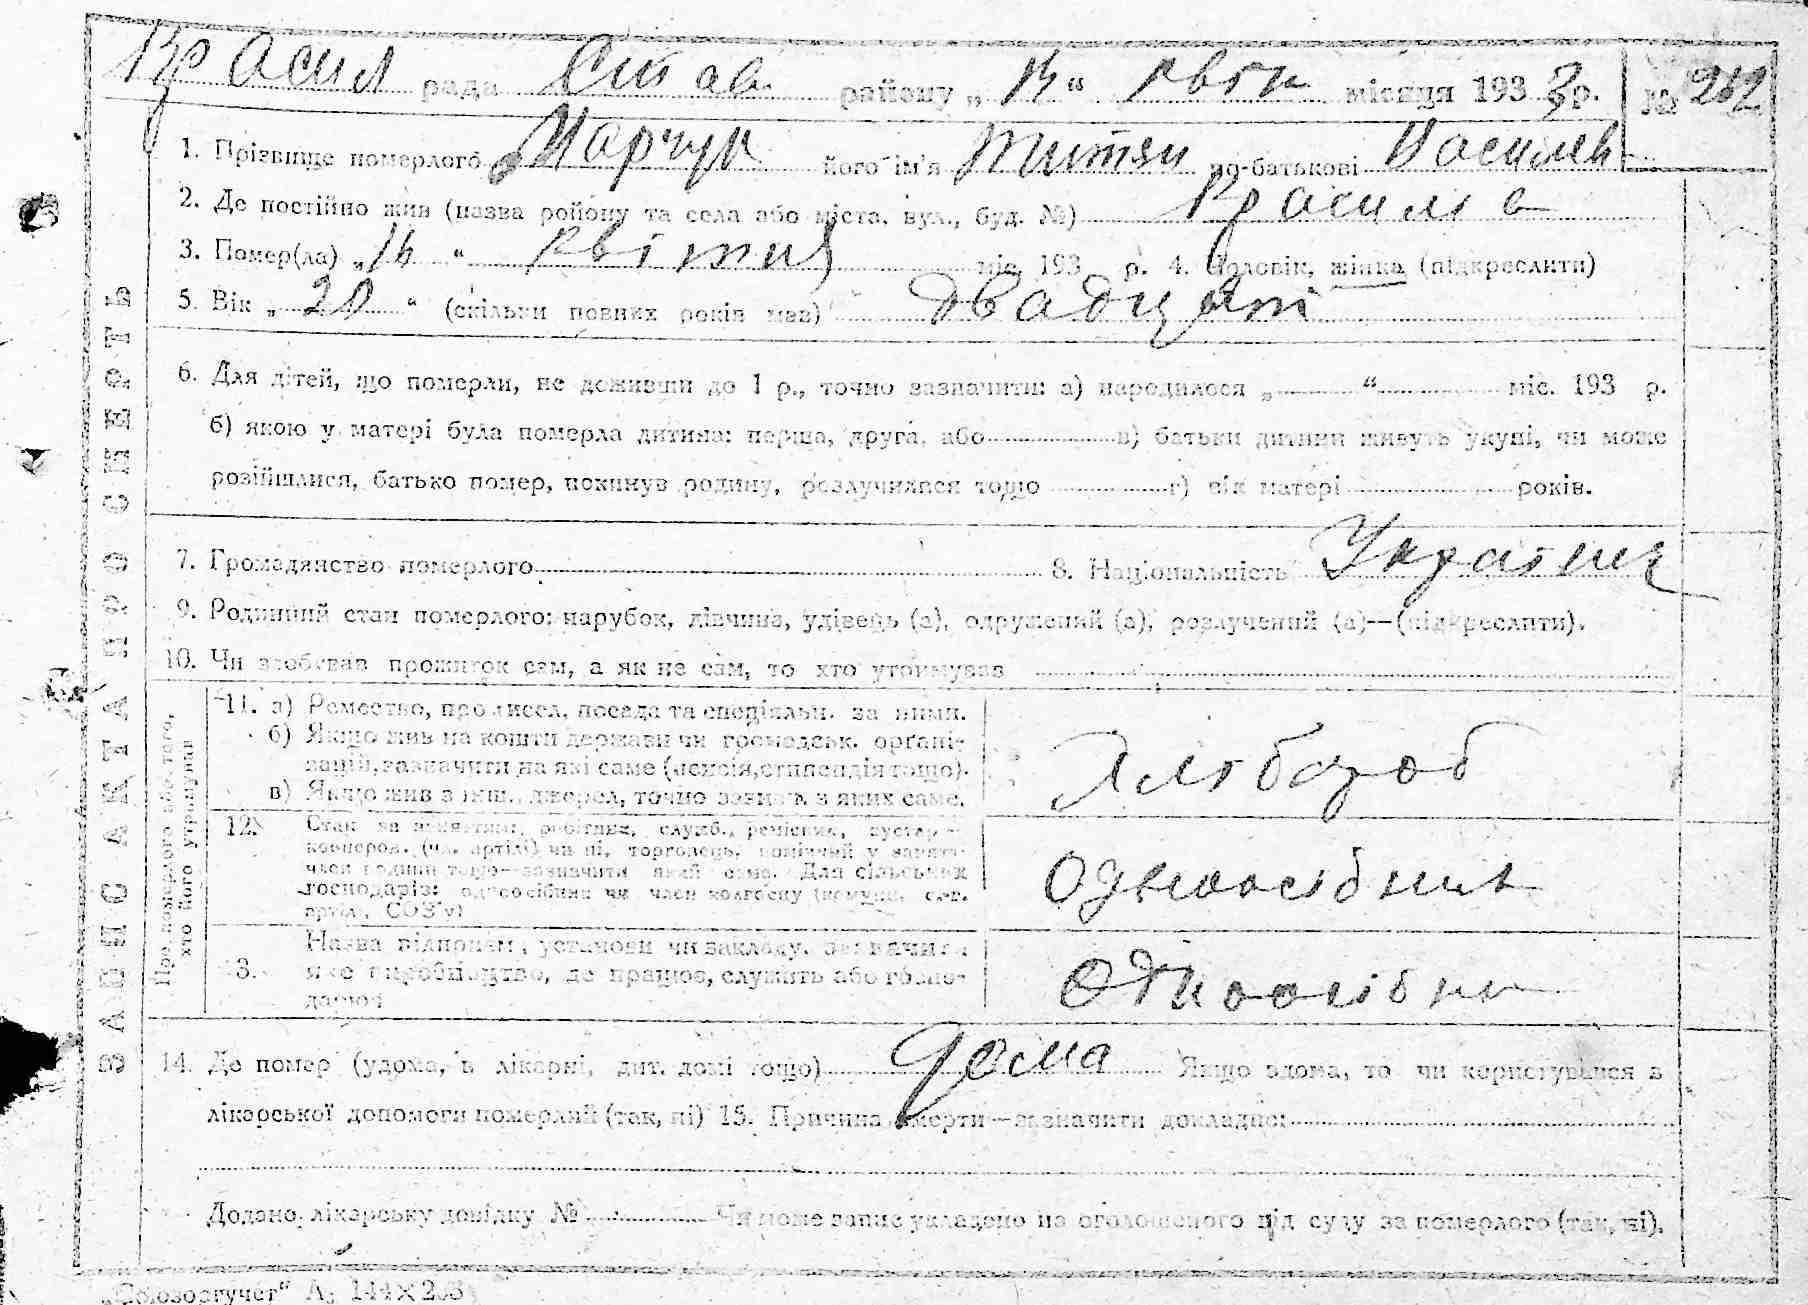 Красил рада Став. району „ “ квітн місяця 1933 р. № 262
1. Прізвище померлого Марчук його ім'я по-батькові Василів
2. Де постійно жив (назва району та села або міста, вул., буд. №) Красилів
3. Помер(ла) „ “ квітня міс. 193 р. 4. Чоловік, жінка (підкреслити)
5. Вік „ 20 “ (скільки повних років мав) двадцять
6. Для дітей, що померли, не доживши до 1 р., точно зазначити: а) народилося „ “ міс. 193 р.
б) якою у матері була померла дитина: перша, друга, або в) батьки дитини живуть укупі, чи може
розійшлися, батько помер, покинув родину, розлучилися тощо г) вік матері років.
7. Громадянство померлого 8. Національність
9. Родинний стан померлого: парубок, дівчина, удівець (а), одружений (а), розлучений (а)—(підкреслити).
10. Чи здобував прожиток сам, а як не сам, то хто утримував
Про померлого або того,
хто його утримував
11. а) Ремество, промисел, посада та спеціяльн. за ними.
б) Якщо жив на кошти держави чи громадськ. органі-
зацій, зазначити на які саме (пенсія, стипендія тощо).
в) Якщо жив з інш. джерел, точно зазнач. з яких саме.
Хлібороб
12. Стан за заняттям: робітник, служб., ремісник, кустар-
коопером. (чл. артілі) чи ні, торговець, помічний у занятт.
член родини тощо—зазначити який саме. Для сільських
господарів: одноосібник чи член колгоспу (комуни, с.-г.
артілі, СОЗ'у)
Одноосібник
13. Назва підприєм., установи чи закладу, зазначити
яке виробництво, де працює, служить або госпо-
дарює
14. Де помер (удома, в лікарні, дит. домі тощо) дома Якщо вдома, то чи користувався з
лікарської допомоги померлий (так, ні) 15. Причина смерти—зазначити докладно:
Додано, лікарську довідку № Чи може запис укладено на оголошеного від суду за померлого (так, ні).
ЗАПИС АКТА ПРО СМЕРТЬ
„Союзоргучет“